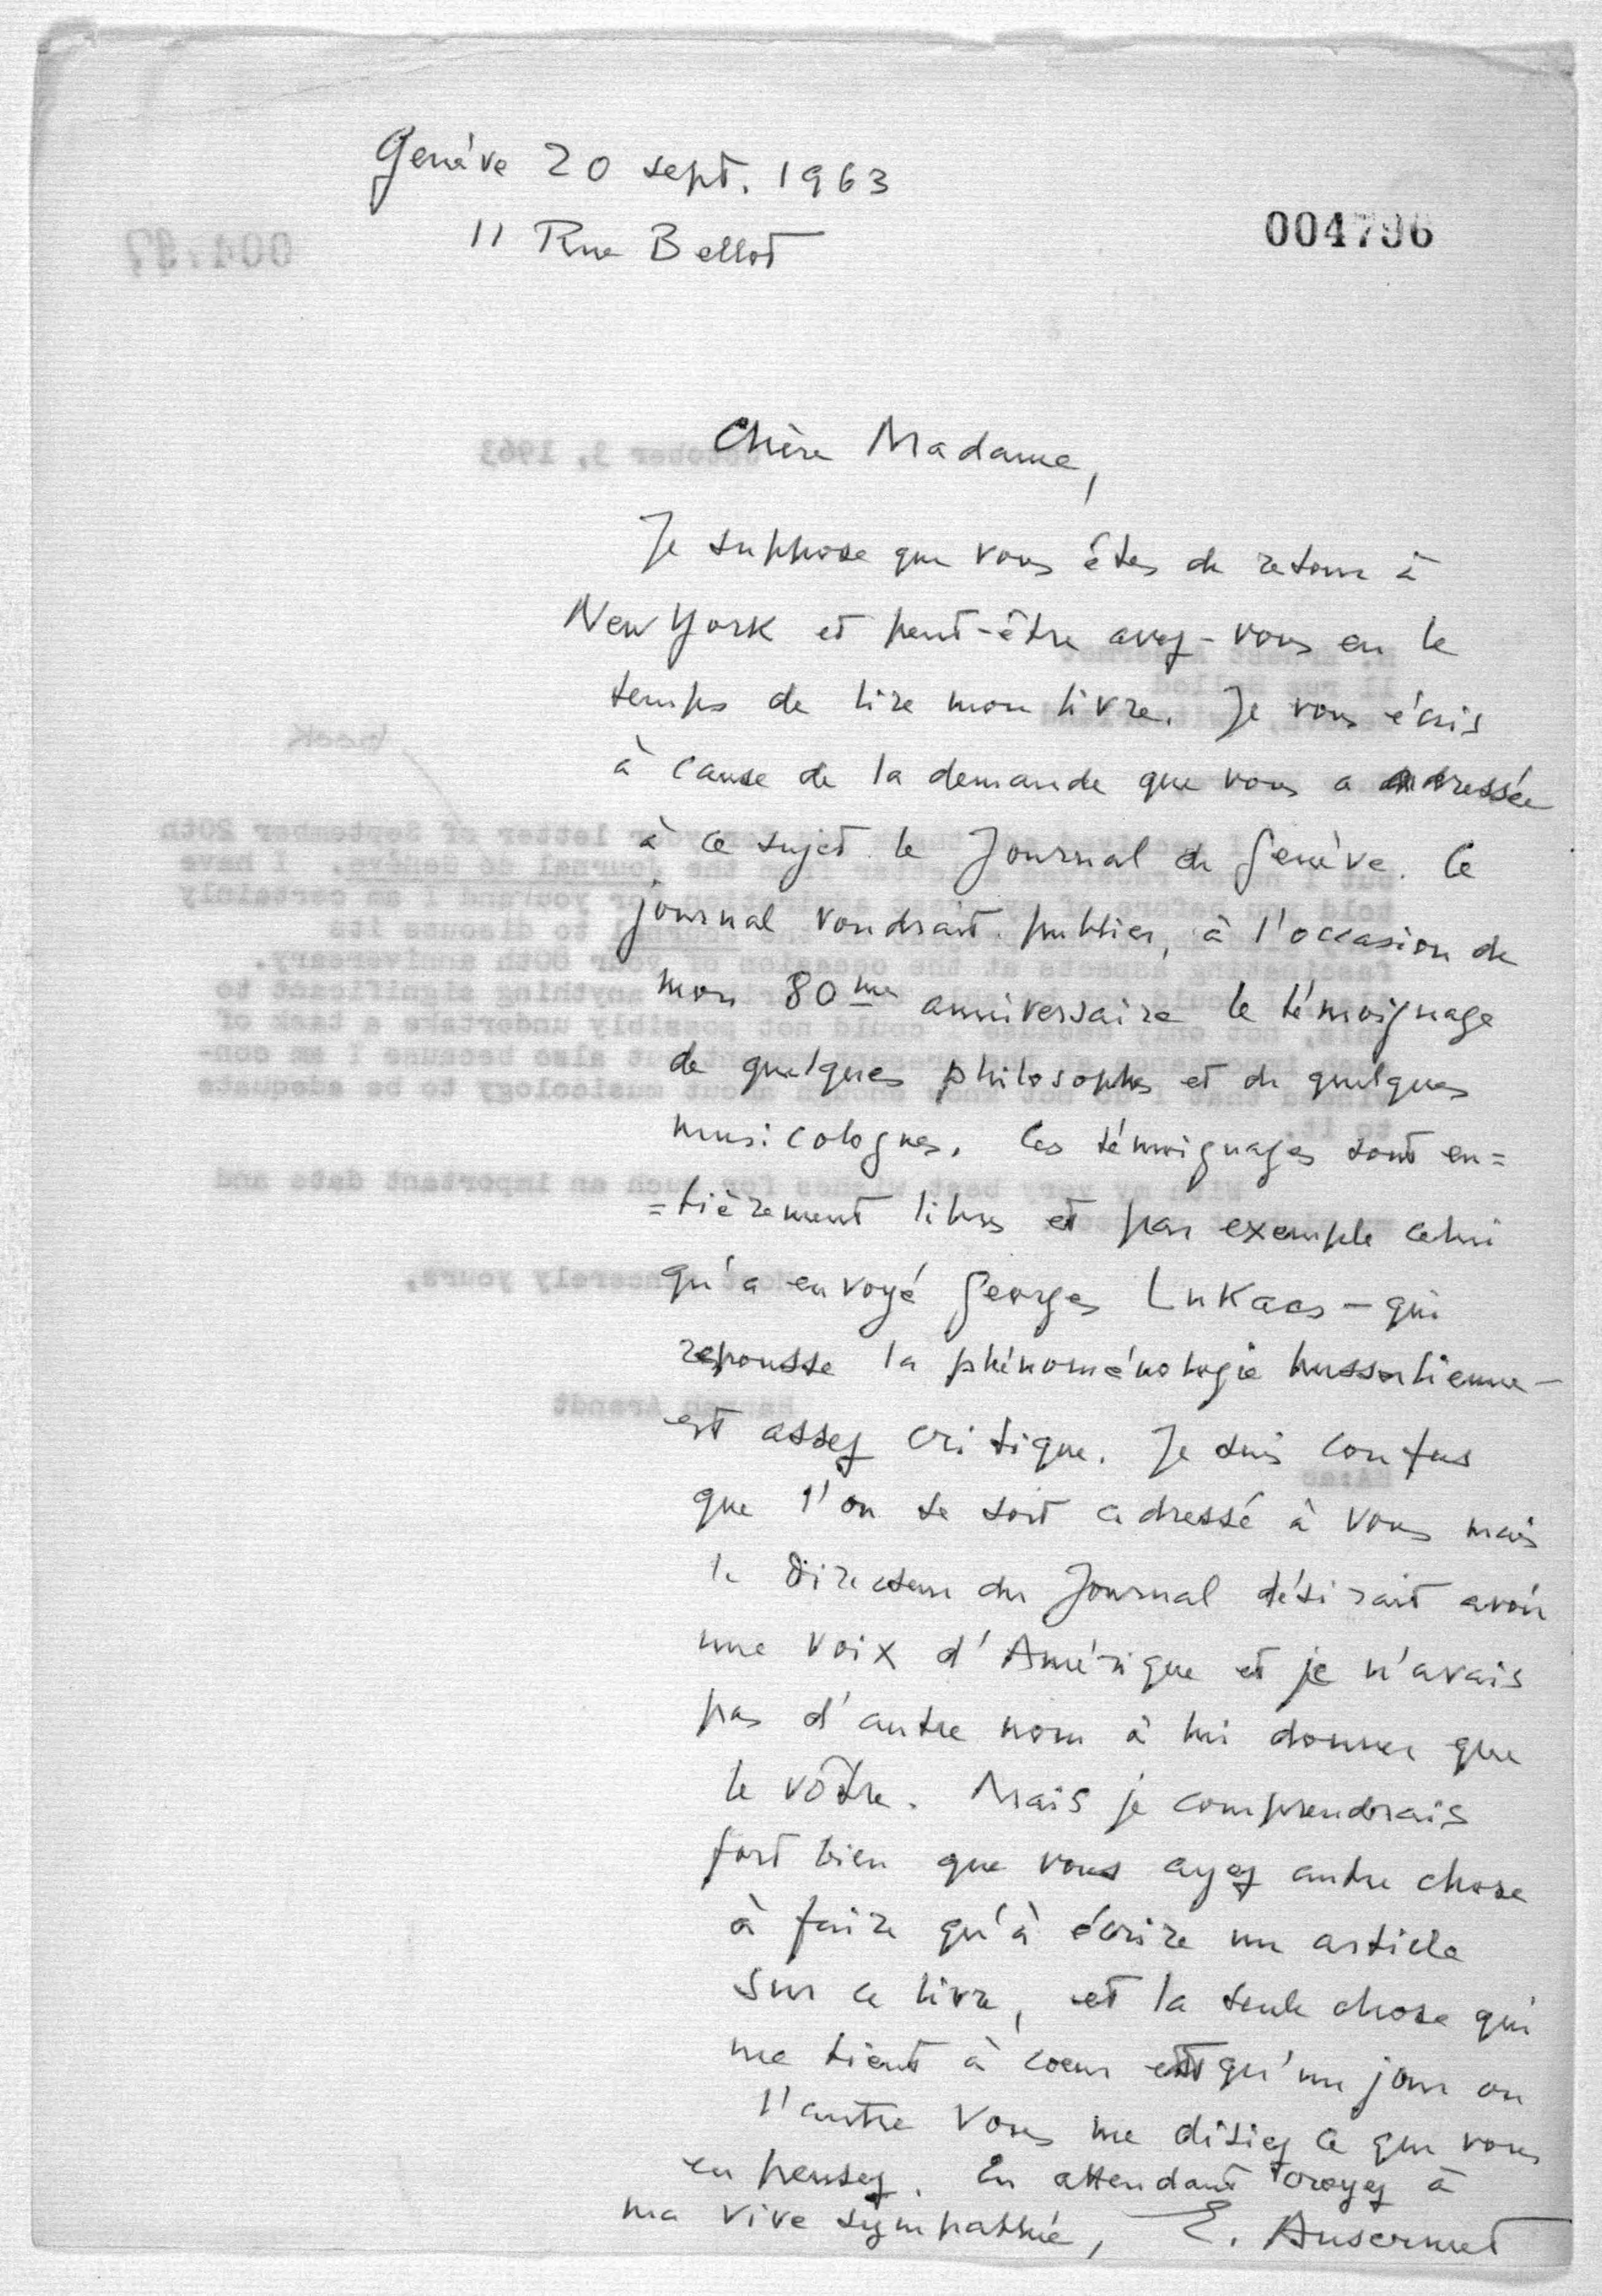 Genève 20 sept. 1963
11 Rue Bellot
004796
Chère Madame,
Je suppose que vous êtes de retour à
New York et peut-être avez-vous eu le
temps de lire mon livre. Je vous écris
à cause de la demande que vous a adressée
à ce sujet le Journal de Genève. Ce
journal voudrait publier, à l'occasion de
mon 80me anniversaire le témoignage
de quelques philosophes et de quelques
musicologues. Ces témoignages sont en=
=tièrement libres et par exemple celui
qu'a envoyé Georges Lukaas – qui
repousse la phénoménologie husserlienne –
est assez critique. Je suis confus
que l'on se soit adressé à vous mais
le Directeur du Journal désirait avoir
une voix d'Amérique et je n'avais
pas d'autre nom à lui donner que
le vôtre. Mais je comprendrais
fort bien que vous ayez autre chose
à faire qu'à écrire un article
sur ce livre, et la seule chose qui
me tient à coeur est qu'un jour ou
l'autre vous me disiez ce que vous
en pensez. En attendant croyez à
ma vive sympathie, E. Ansermet